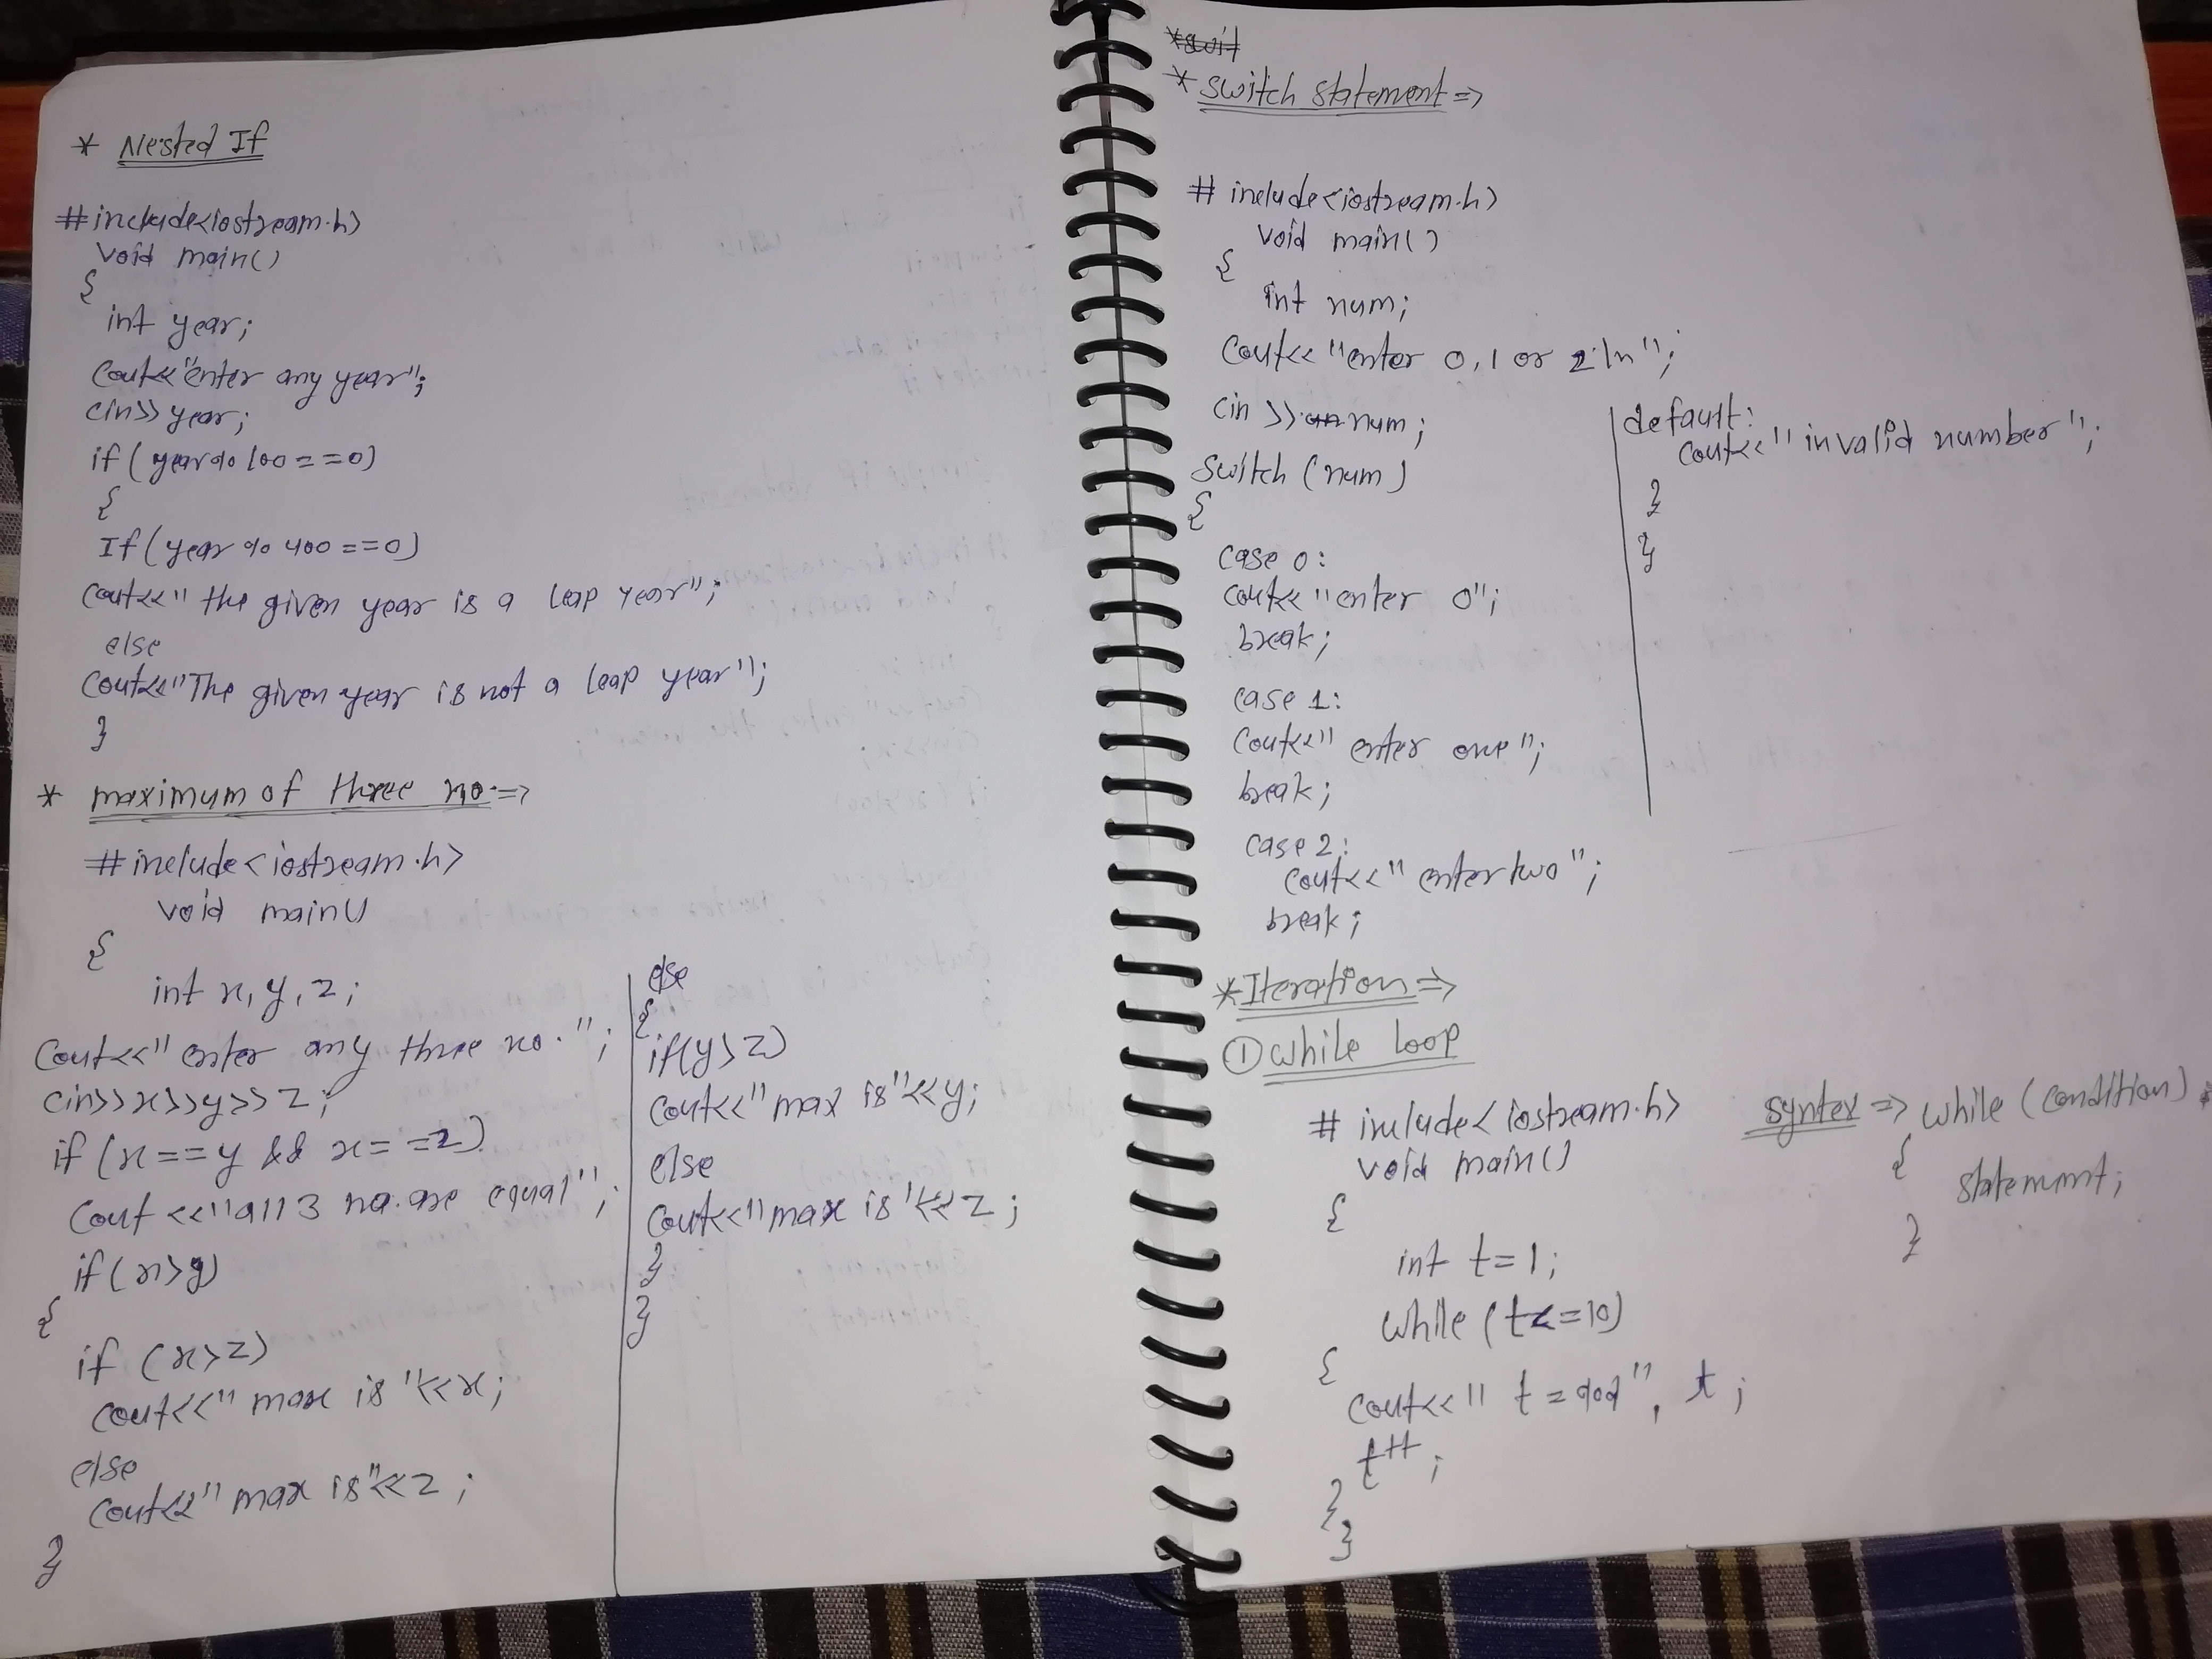 * Nested If
#include<iostream.h>
void main()
{
int year;
cout<<"enter any year";
cin>>year;
if (year%100==0)
{
If (year % 400 ==0)
cout<<" the given year is a leap year";
else
cout<<"The given year is not a leap year";
}
* maximum of three no.=>
#include<iostream.h>
void main()
{
int x, y, z;
cout<<" enter any three no.";
cin>>x>>y>>z;
if (x==y && x==z)
cout <<"all 3 no. are equal";
if (x>y)
{
if (x>z)
cout<<" max is "<<x;
else
cout<<" max is"<<z;
}
else
{
if(y>z)
cout<<" max is"<<y;
else
cout<<" max is "<<z;
}
}
* switch statement =>
# include<iostream.h>
void main()
{
int num;
cout<< "enter 0,1 or 2\n";
cin >> num;
switch (num)
{
case 0:
cout<< "enter 0";
break;
case 1:
cout<<" enter one";
break;
case 2:
cout<<" enter two";
break;
default:
cout<<" invalid number";
}
}
* Iteration =>
① while loop
# include<iostream.h>
void main()
{
int t=1;
while (t<=10)
{
cout<<" t=%d", t;
t++;
}
}
syntex => while (condition)
{
statement;
}